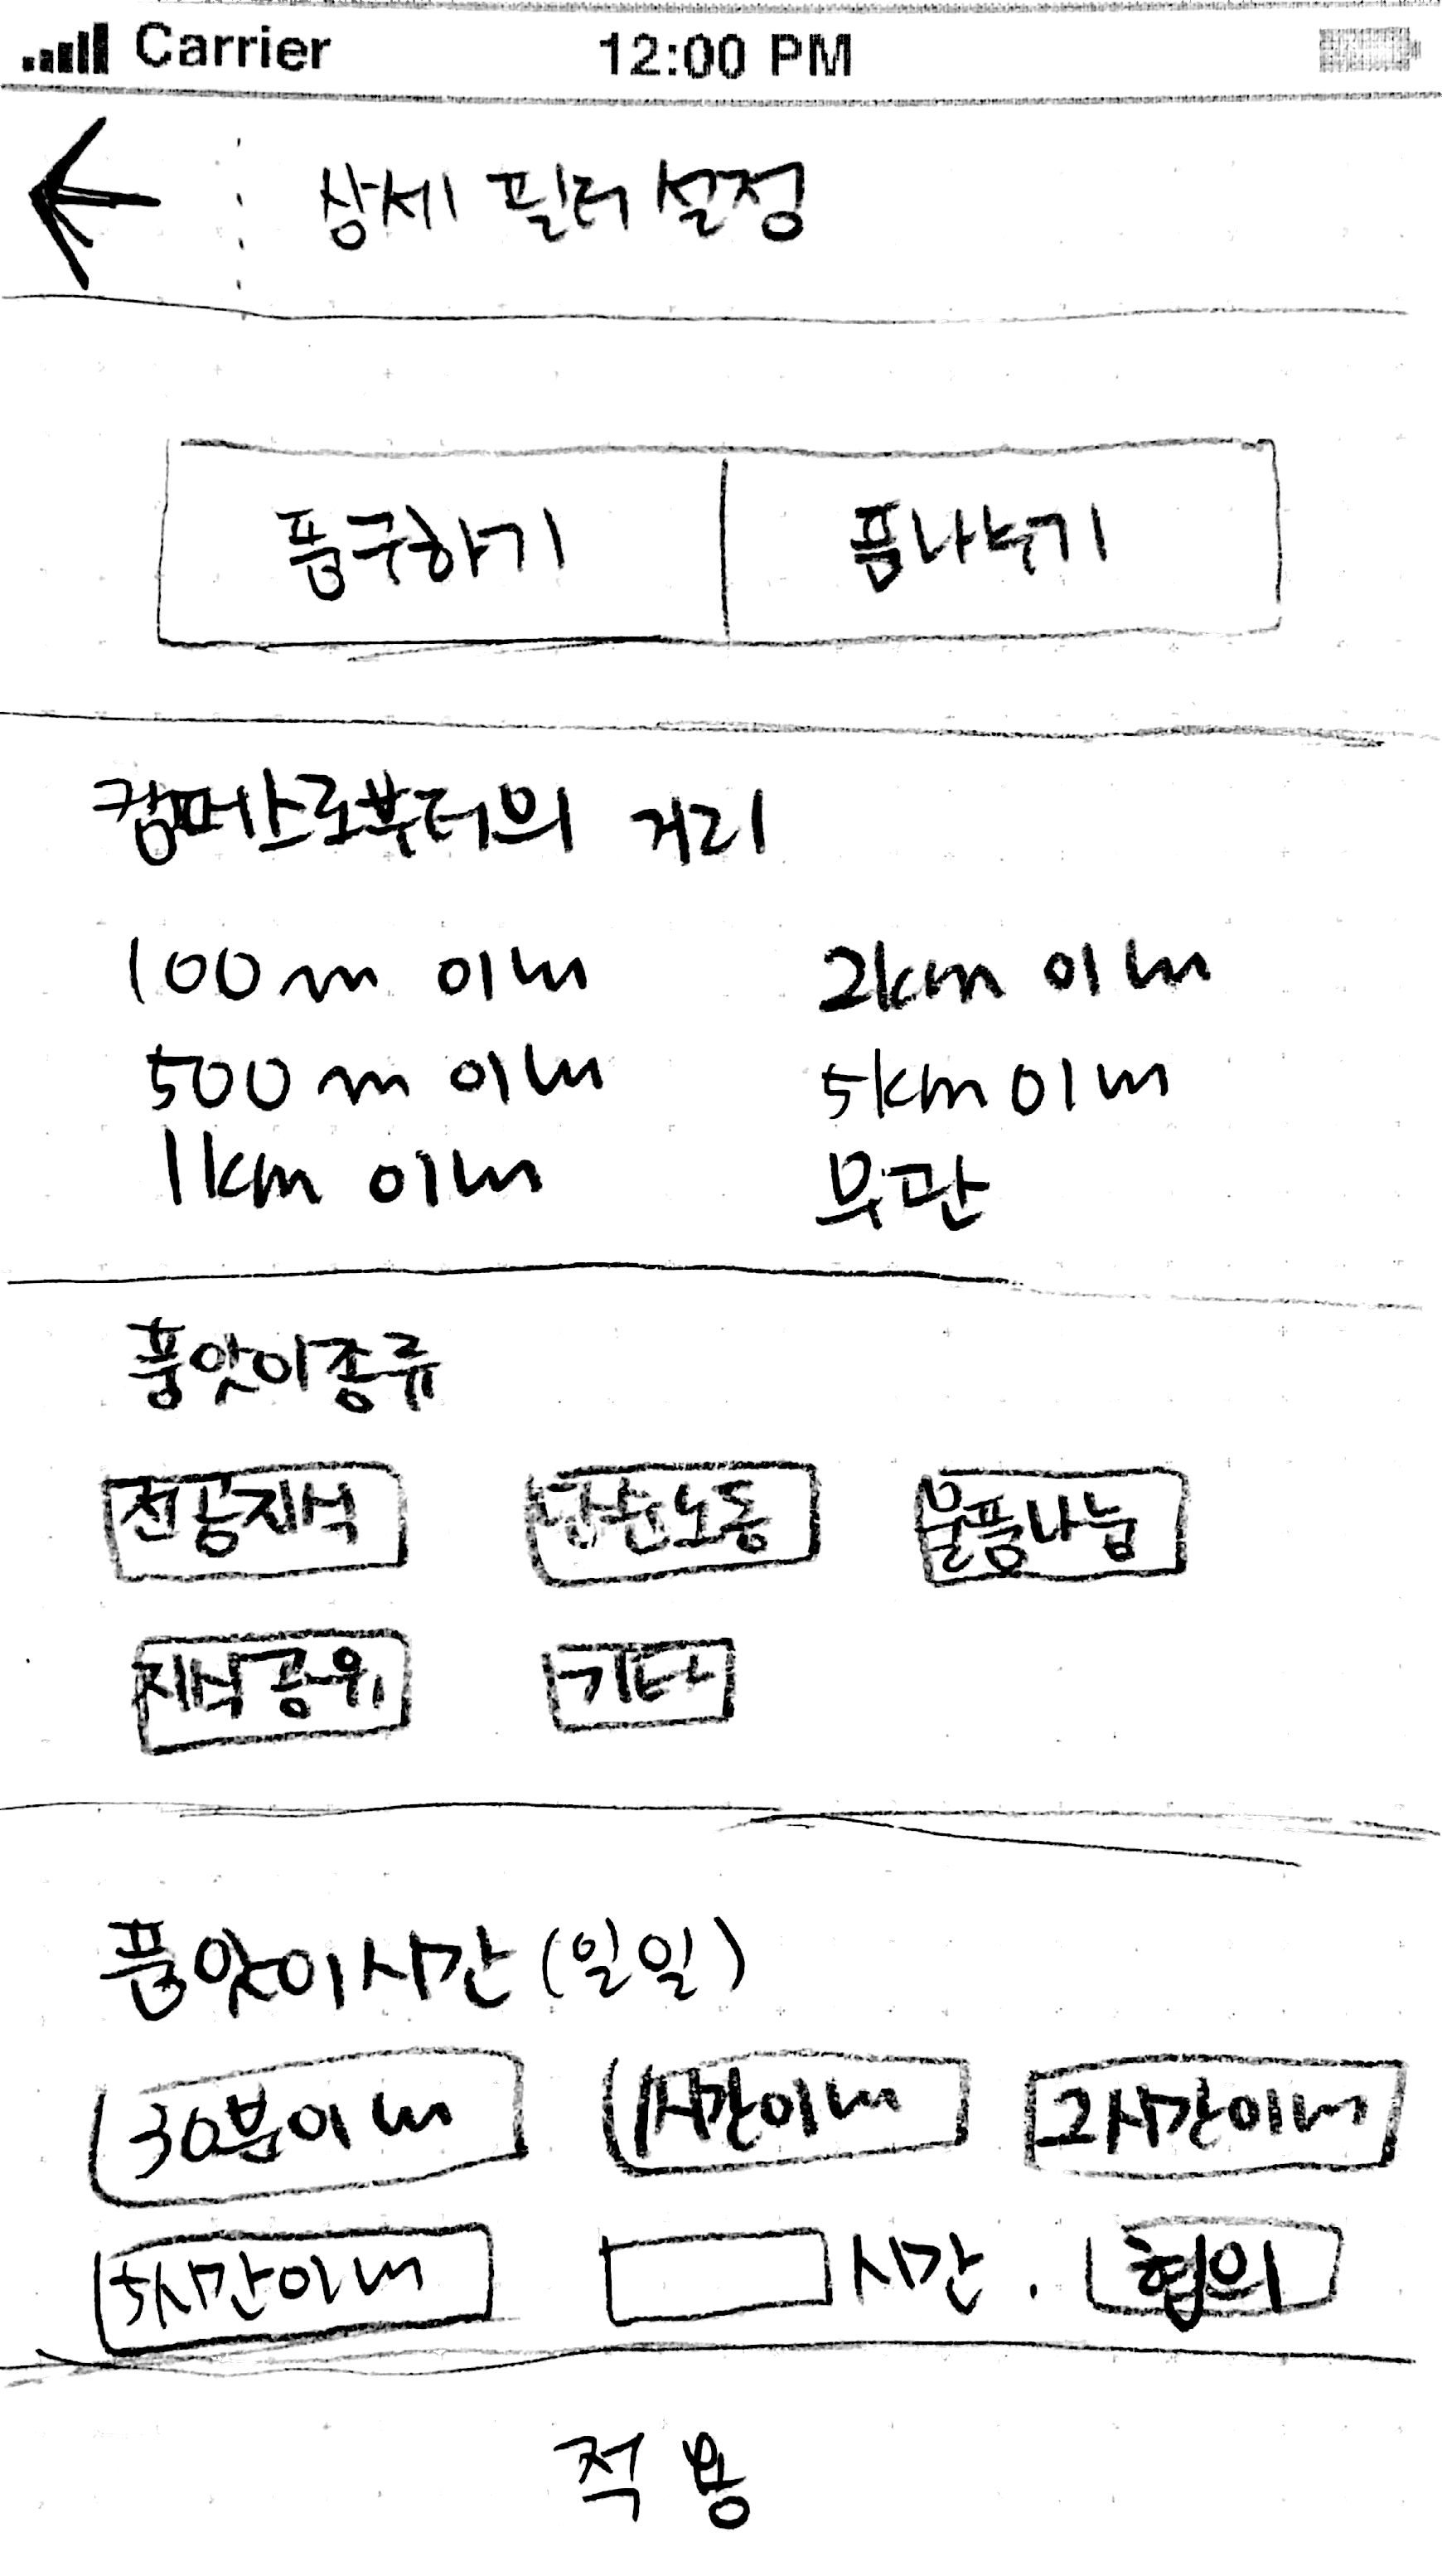 Carrier 12:00 PM
상세 필터 설정
품구하기 품나누기
캠퍼스로부터의 거리
100m 이내 2km 이내
500m 이내 5km 이내
1km 이내 무관
품앗이종류
전공지식 단순노동 물품나눔
지식공유 기타
품앗이시간 (일일)
30분이내 1시간이내 2시간이내
5시간이내 시간. 협의
적용